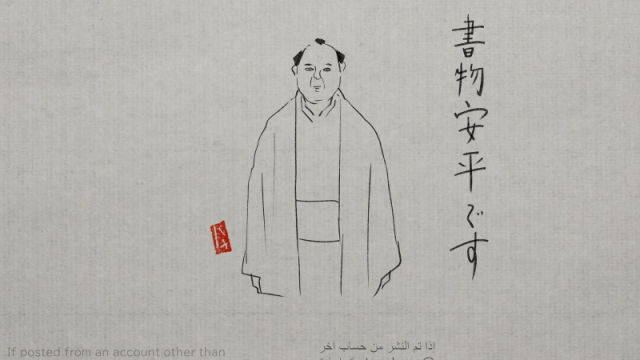 書物安平です
If posted from an account other than
اذا تم النشر من حساب آخر